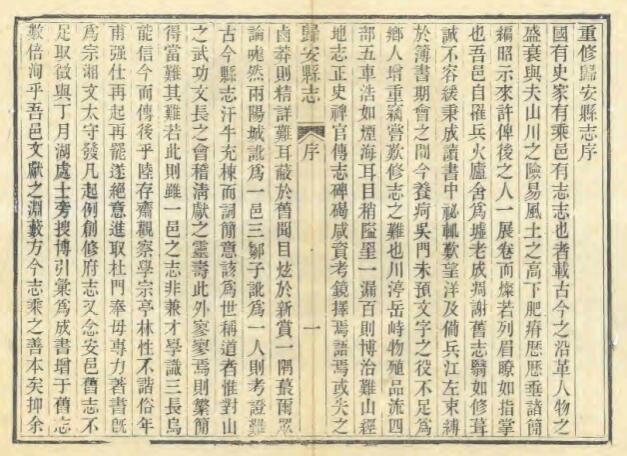 重修歸安縣志序
國有史家有乘邑有志志也者載古今之沿革人物之
盛衰與夫山川之險易風土之高下肥瘠歷歷垂諸簡
編昭示來許俾後之人一展卷而燦若列眉瞭如指掌
也吾邑自罹兵火廬舍爲墟老成凋謝舊志闕如修葺
誠不容緩秉成讀書中祕輒歎望洋及備兵江左束縛
於簿書期會之間今養疴吳門未預文字之役不足爲
鄉人增重竊嘗歎修志之難也川渟岳峙物殖品流四
部五車浩如煙海耳目稍隘罣一漏百則博洽難山經
地志正史稗官傳志碑碣咸資考鏡擇焉語焉或失之
歸安縣志 序 一
鹵莽則精詳難耳蔽於舊聞目炫於新賞一隅蕞爾眾
論嘵然兩陽城訛爲一邑三鄒子訛爲一人則考證難
古今縣志汗牛充棟而詞簡意該爲世稱道者惟對山
之武功文長之會稽淸獻之靈壽此外寥寥焉則繁簡
得當難其難若此則雖一邑之志非兼才學識三長烏
能信今而傳後乎陸存齋觀察學宗亭林性不諧俗年
甫强仕再起再罷遂絕意進取杜門奉母專力著書旣
爲宗湘文太守發凡起例創修府志又念安邑舊志不
足取徵與丁月湖處士旁搜博引彙爲成書增于舊志
數倍洵乎吾邑文獻之淵藪方今志乘之善本矣抑余